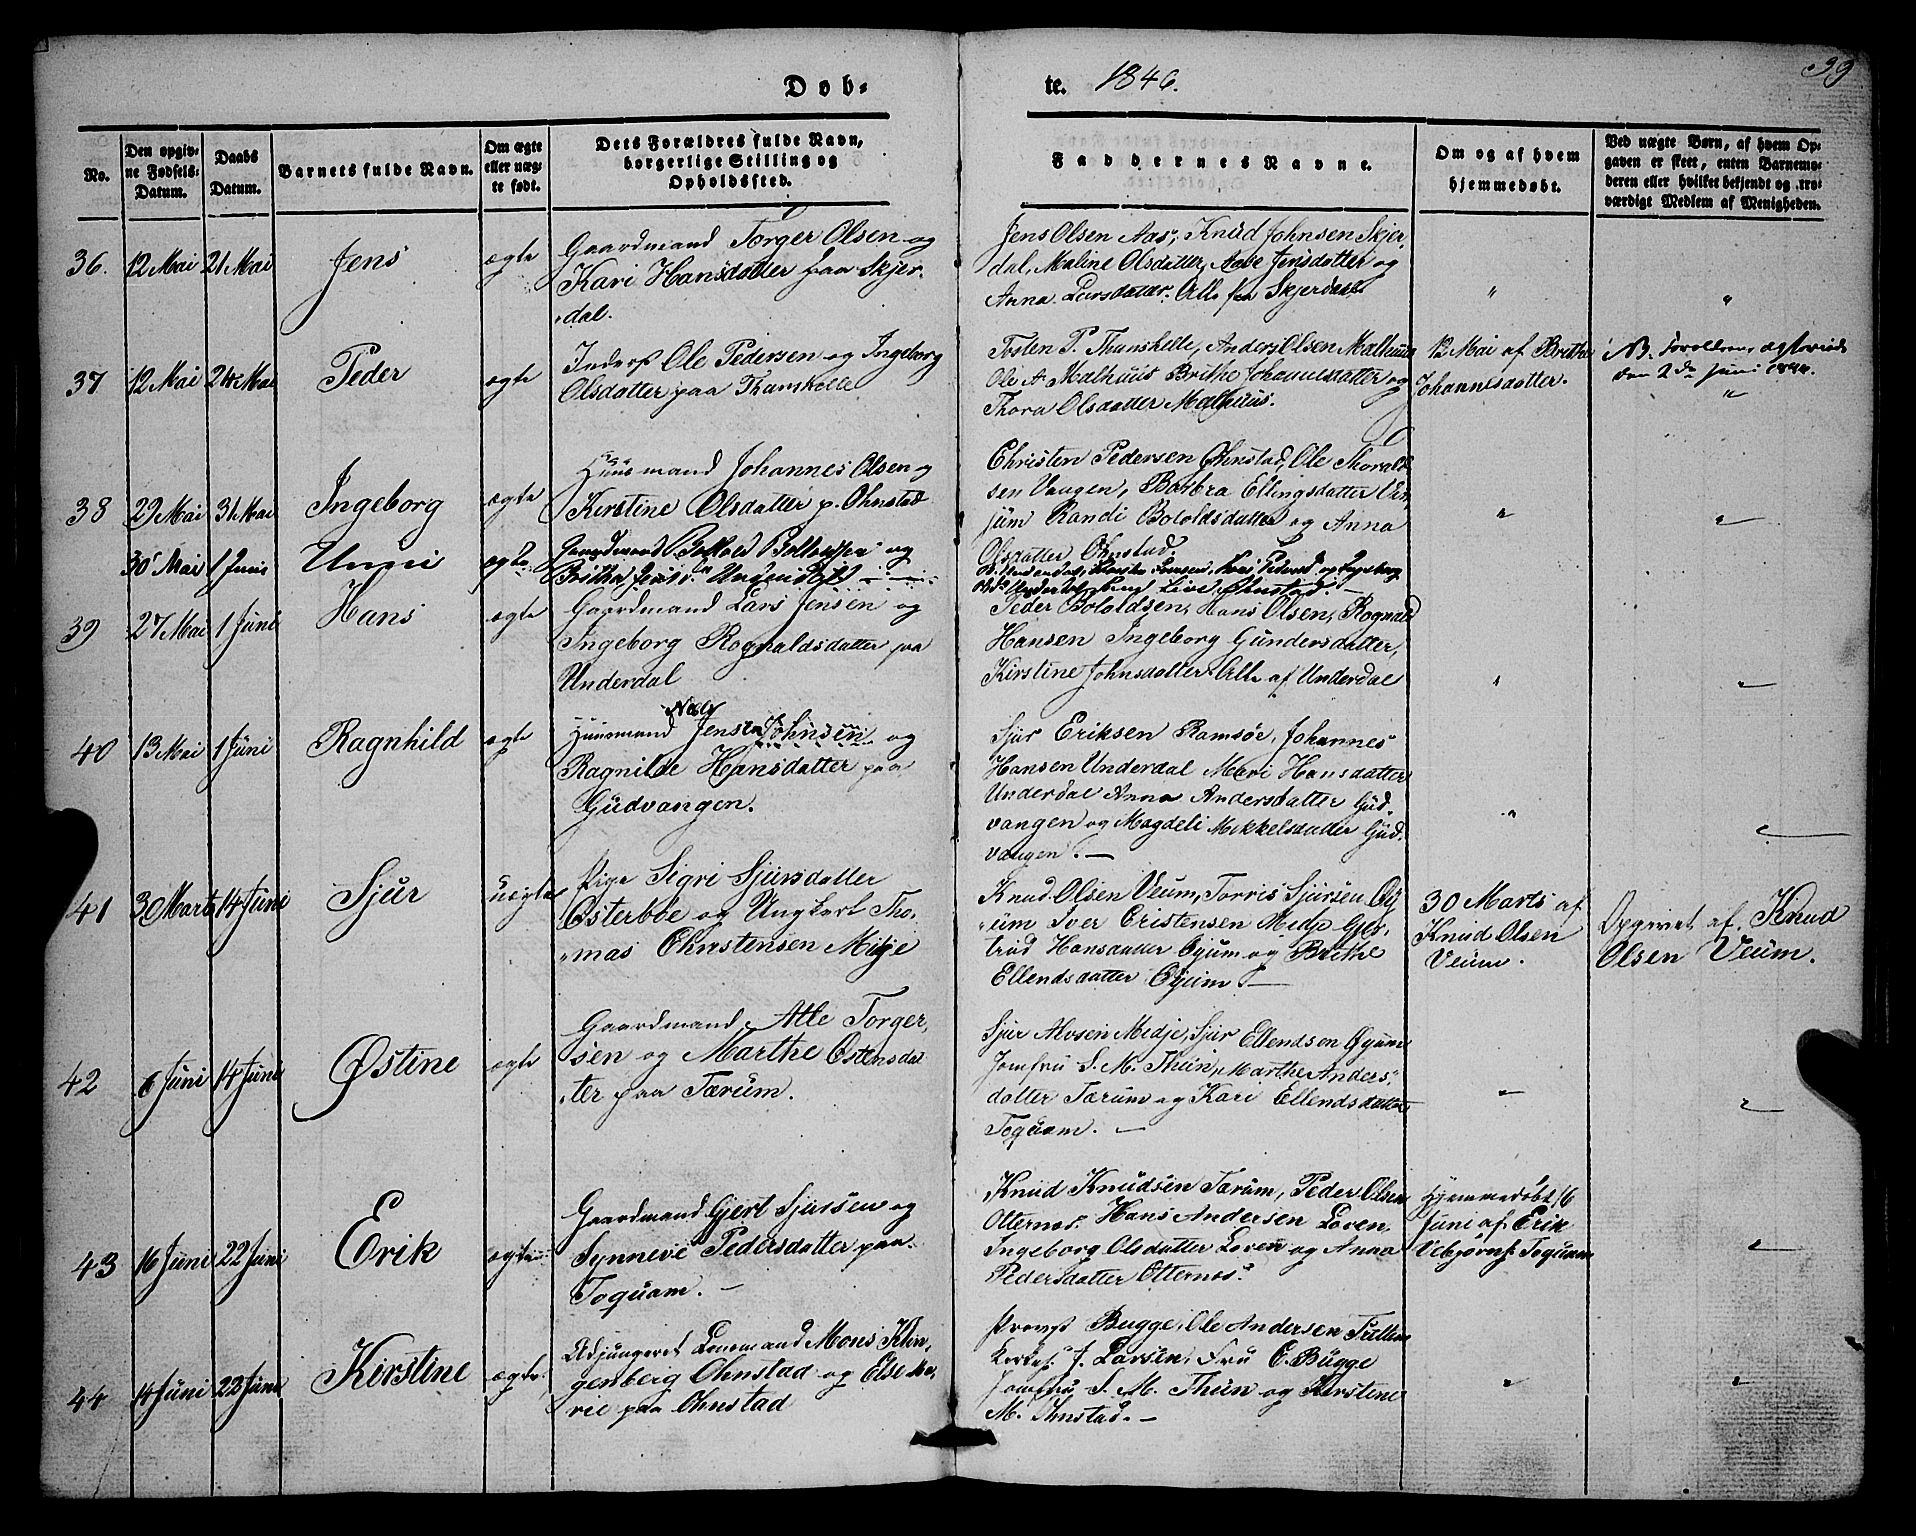 39
Døb-
te. 1846.
No.
Den opgiv-
ne Fødsels-
Datum.
Daabs
Datum.
Barnets fulde Navn.
Om ægte
eller uæg-
te født.
Dets Forældres fulde Navn,
borgerlige Stilling og
Opholdssted.
Faddernes Navne.
Om og af hvem
hjemmedøbt.
Ved uægte Børn, af hvem Op-
gaven er skeet, enten Barnemo-
deren eller hvilket bekjendt og tro-
værdigt Medlem af Menigheden.
36. 12 Mai 21 Mai Jens ægte
Gaardmand Torger Olsen og
Kari Hansdatter paa Skjer-
dal.
Jens Olsen Aas, Knud Johnsen Skjer-
dal, Maline Olsdatter, Aase Jensdatter og
Anna Larsdatter. Alle fra Skjerdal
" "
37 12 Mai 24 Mai Peder ægte
Inders Ole Pedersen og Ingeborg
Olsdatter paa Thunshelle
Tosten P. Thunshelle, Anders Olsen Malhuus
Ole A Malhuus Brithe Johannsdatter og
Thora Olsdatter Malhuus.
12 Mai af Brithe
Johannesdatter.
NB. Forældrene
den 2den Juni
"
38 29 Mai 31 Mai Ingeborg ægte
Huusmand Johannes Olsen og
Kirstine Olsdatter p. Ohnstad
Christen Pedersen Ohnstad, Ole Thorald-
sen Vangen, Barbra Ellingsdatter Ve-
jum Randi Bololdsdatter og Anna
Olsdatter Ohnstad.
" "
30 Mai 1 Juni Unni ægte
Gaardmand og
Britha Undendahl
Ohnstad.
39 27 Mai 1 Juni Hans ægte
Gaardmand Lars Jensen og
Ingeborg Rognaldsdatter paa
Underdal
Peder Bololdsen, Hans Olsen, Rognald
Hansen Ingeborg Gundersdatter,
Kirstine Johnsdatter. Alle af Underdal
" "
40 13 Mai 1 Juni Ragnhild ægte
Huusmand Jens Johnsen og
Ragnilde Hansdatter paa
Gudvangen.
Sjur Eriksen Ramsøe, Johannes
Hansen Underdal Mari Hansdatter
Underdal Anna Andersdatter Gud-
vangen og Magdeli Mikkelsdatter Gud-
vangen. —
" "
41 30 Marts 14 Juni Sjur uægte
Pige Sigri Sjursdatter
Østerbøe og Ungkarl Tho-
mas Christensen Midje
Knud Olsen Veum, Torris Sjursen Øy-
um Iver Cristensen Midje Ger-
trud Hansdatter Øyum og Brithe
Ellendsdatter Øyum. —
30 Marts af
Knud Olsen
Veum.
Opgivet af Knud
Olsen Veum.
42 6 Juni 14 Juni Østine ægte
Gaardmand Atle Torger-
sen og Marthe Østensdat-
ter paa Tærum.
Sjur Alvsen Midje, Sjur Ellendsen Øyum
Jomfru S. M. Thun, Marthe Anders-
datter Tærum og Kari Ellendsdatter
Toquam. —
" "
43 16 Juni 22 Juni Erik ægte
Gaardmand Gjert Sjursen og
Synneve Pedersdatter paa
Toquam. —
Knud Knudsen Tærum, Peder Olsen
Otternes. Hans Andersen Loven
Ingeborg Olsdatter Loven og Anna
Pedersdatter Otternes.
Hjemmedøbt 16
Juni af Erik
Vebjørns. Toquam
"
44 14 Juni 23 Juni Kirstine ægte
Adjungeret Lensmand Mons Klin-
genberg Ohnstad og Else Ma-
rie paa Ohnstad
Provst Bugge, Ole Andersen Fretheim
J. Larsen, Fru C. Bugge
Jomfru S. M. Thun og Kirstine
M. Ohnstad. —
" "